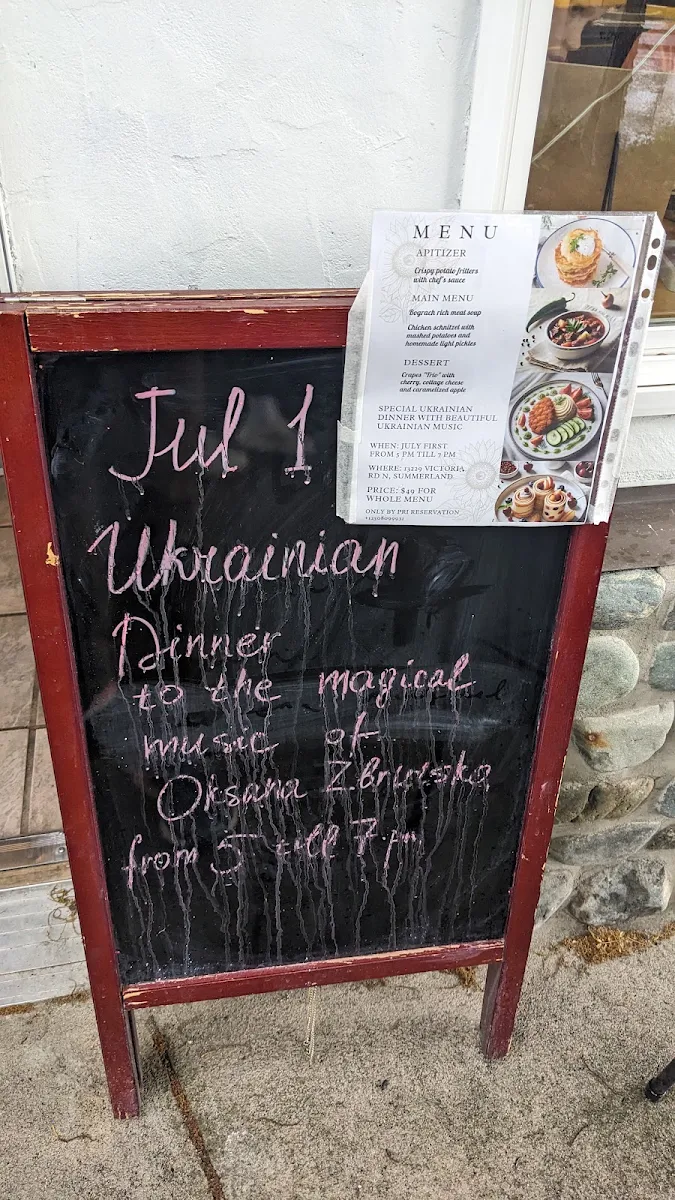 MENU
APITIZER
Crispy potato fritters
with chef's sauce
MAIN MENU
Bograch rich meal soup
Chicken schnitzel with
mashed potatoes and
homemade light pickles
DESSERT
Crapes "Trio" with
cherry, cottage cheese
and caramelized apple
SPECIAL UKRAINIAN
DINNER WITH BEAUTIFUL
UKRAINIAN MUSIC
WHEN: JULY FIRST
FROM 5 PM TILL 7 PM
WHERE: 13229 VICTORIA
RD N, SUMMERLAND
PRICE: $49 FOR
WHOLE MENU
ONLY BY PRI RESERVATION
Jul 1
Ukrainian
Dinner
to the magical
music of
Oksana
from 5 till 7 pm